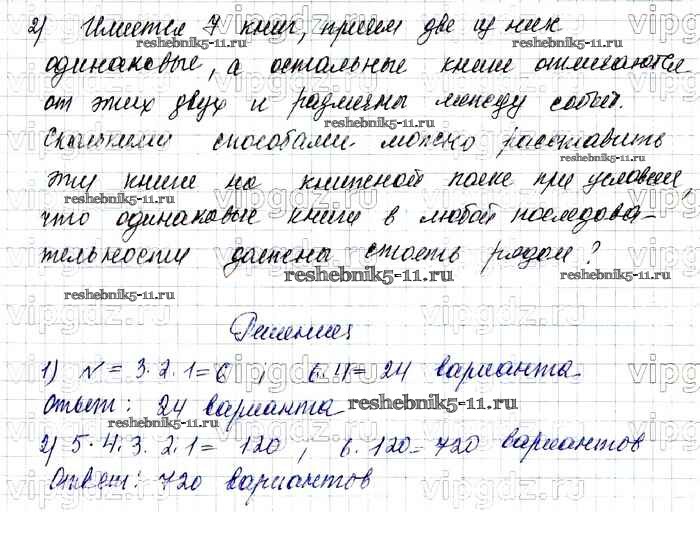 2) Имеется 7 книг, причем две из них
одинаковые, а остальные книги отличаются
от этих двух и различны между собой.
Сколькими способами можно расставить
эти книги на книжной полке при условии,
что одинаковые книги в любой последова-
тельности должны стоять рядом?
Решения
1) N = 3·2·1=6, 6·4=24 варианта
Ответ: 24 варианта
2) 5·4·3·2·1= 120, 6·120=720 вариантов
Ответ: 720 вариантов
reshebnik5-11.ru
vipgdz.ru